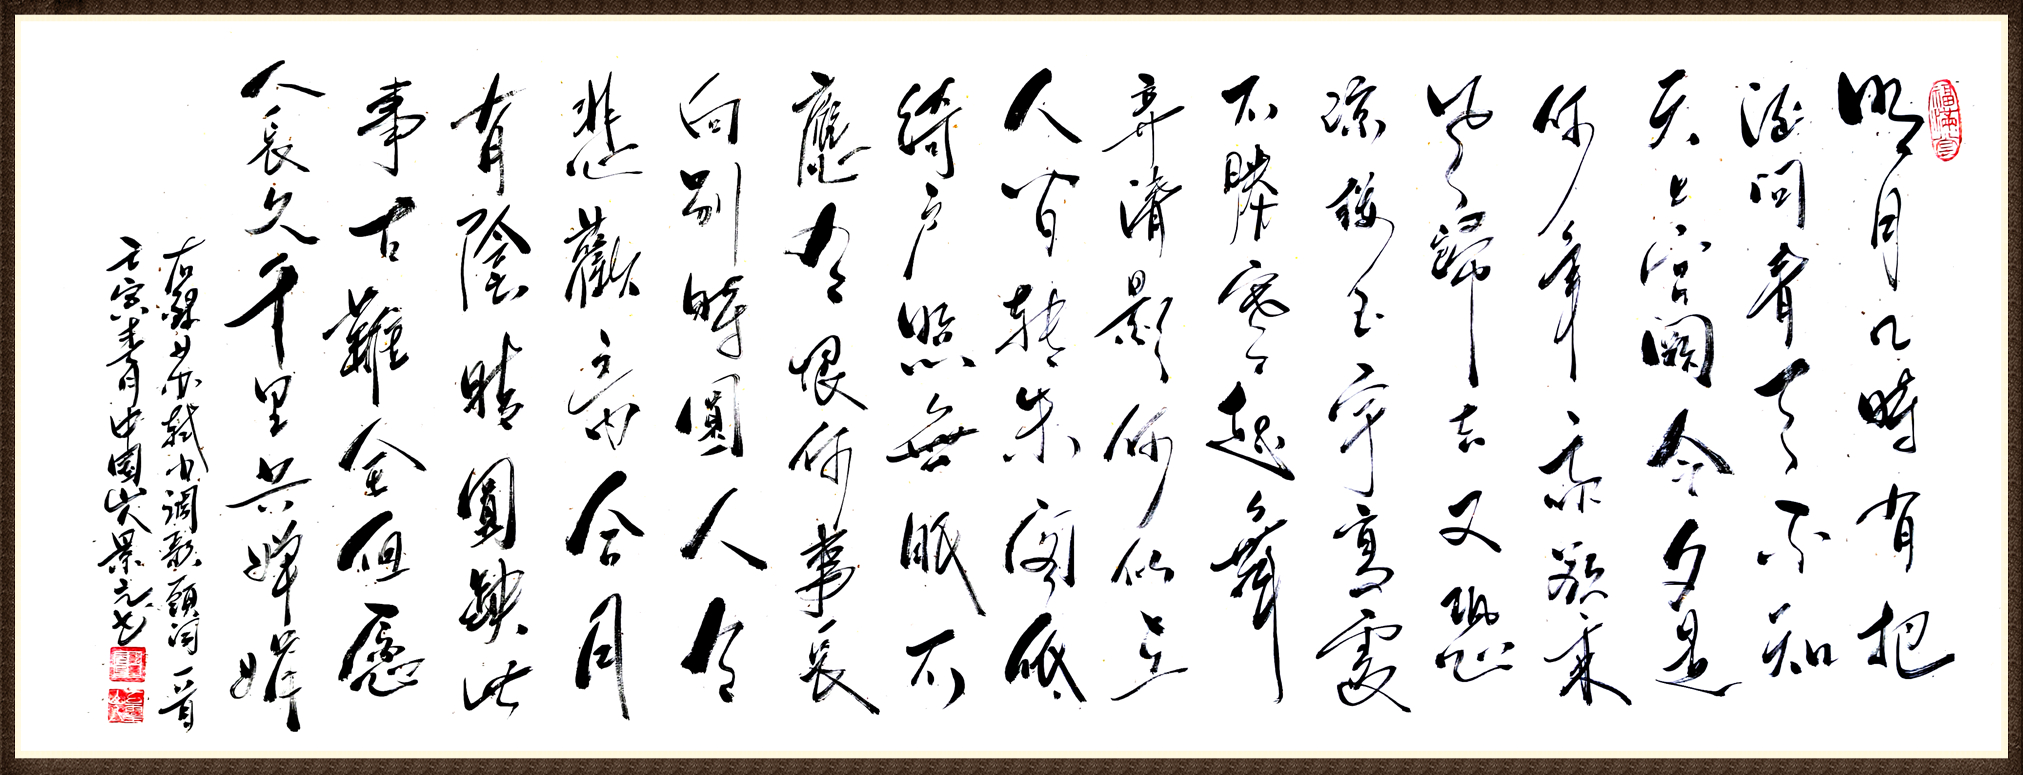 福满堂
明月几時有把
酒問青天不知
天上宮闕今夕是
何年我欲乘
風歸去又恐
琼樓玉宇高處
不勝寒起舞
弄清影何似在
人间轉朱阁低
綺户照無眠不
應有恨何事長
向别時圓人有
悲歡离合月
有陰晴圓缺此
事古難全但愿
人長久千里共嬋娟
右録苏軾水調歌頭词一首
壬寅青月中國山人景元书